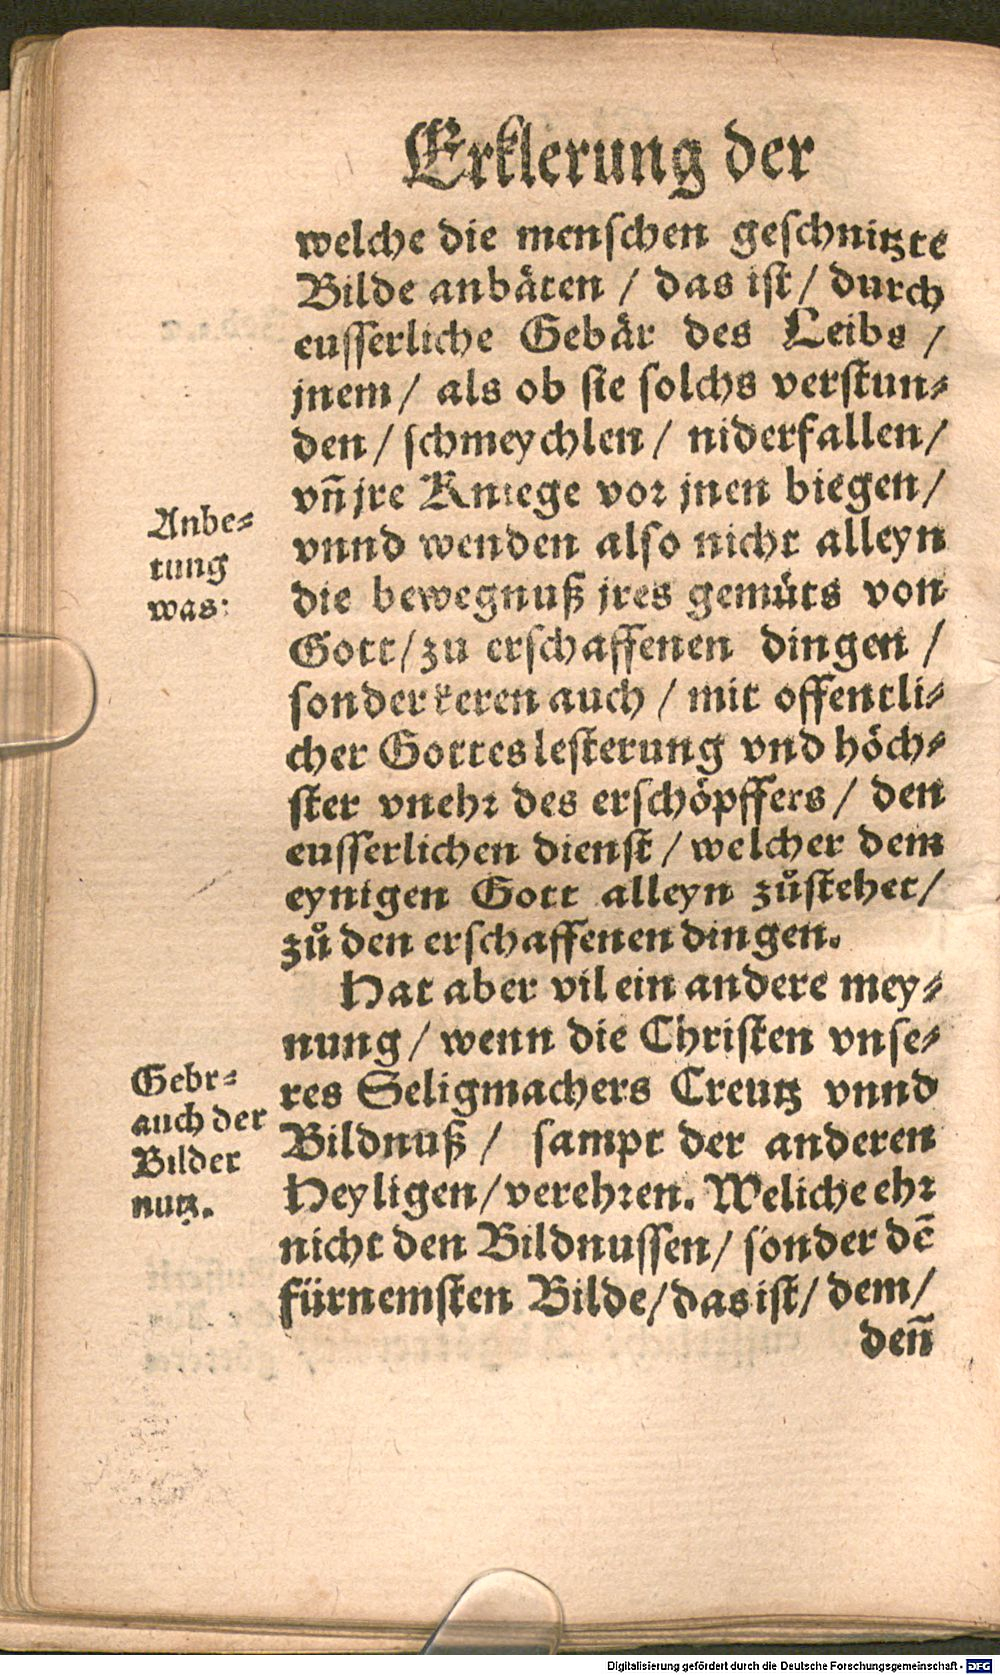 Erklerung der
welche die menſchen geſchnitzte
Bilde anbåten / das iſt / durch
euſſerliche Gebår des Leibs /
jnem / als ob ſie ſolchs verſtun⸗
den / ſchmeychlen / niderfallen /
vñ jre Kniege vor jnen biegen /
vnnd wenden alſo nicht alleyn
die bewegnuß jres gemůts von
Gott / zu erſchaffenen dingen /
ſonder keren auch / mit offentli⸗
cher Gotteslesterung vnd höch⸗
ſter vnehr des erſchöpffers / den
euſſerlichen dienſt / welcher dem
eynigen Gott alleyn zůſtehet /
zů den erſchaffenen dingen.
Hat aber vil ein andere mey⸗
nung / wenn die Chriſten vnſe⸗
res Seligmachers Creutz vnnd
Bildnuß / ſampt der anderen
Heyligen / verehren. Weliche ehr
nicht den Bildnuſſen / ſonder dē
fürnemſten Bilde / das iſt / dem /
deñ
Anbe⸗
tung
was:
Gebr⸗
auch der
Bilder
nutz.
Digitalisierung gefördert durch die Deutsche Forschungsgemeinschaft - DFG